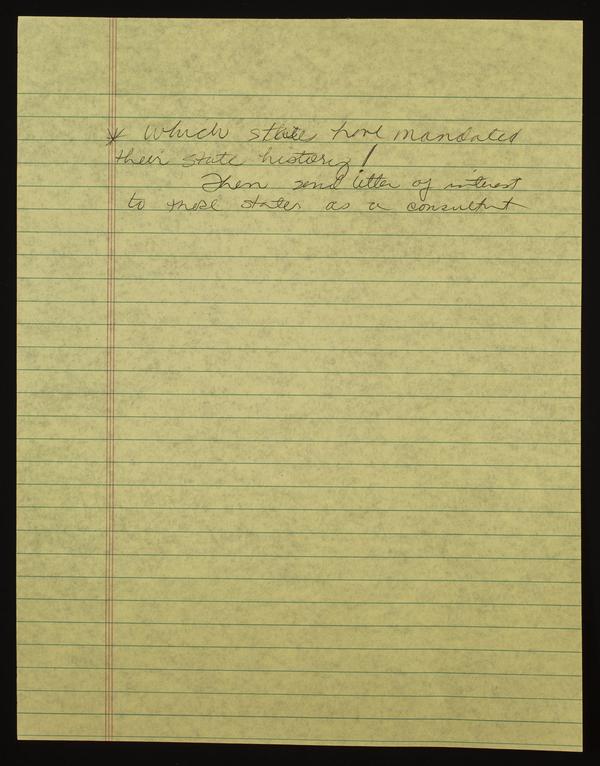 * Which states have mandated
their state history!
Then send letter of interest
to these states as a consultant